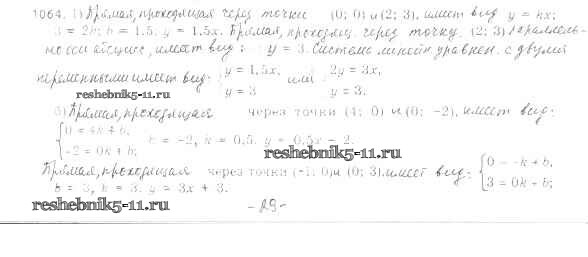 1064. 1) Прямая, проходящая через точки (0; 0) и (2; 3), имеет вид y = kx;
3 = 2k; k = 1,5; y = 1,5x. Прямая, проходящ. через точку (2; 3) параллель-
но оси абсцисс, имеет вид: y = 3. Система линейн. уравнен. с двумя
переменными имеет вид: { y = 1,5x, или { 2y = 3x,
y = 3 y = 3.
reshebnik5-11.ru
б) Прямая, проходящая через точки (4; 0) и (0; -2), имеет вид:
{ 0 = 4k + b,
-2 = 0k + b; b = -2, k = 0,5. y = 0,5x - 2.
reshebnik5-11.ru
Прямая, проходящая через точки (-1; 0) и (0; 3) имеет вид: { 0 = -k + b,
3 = 0k + b;
b = 3, k = 3. y = 3x + 3.
reshebnik5-11.ru
- 29 -